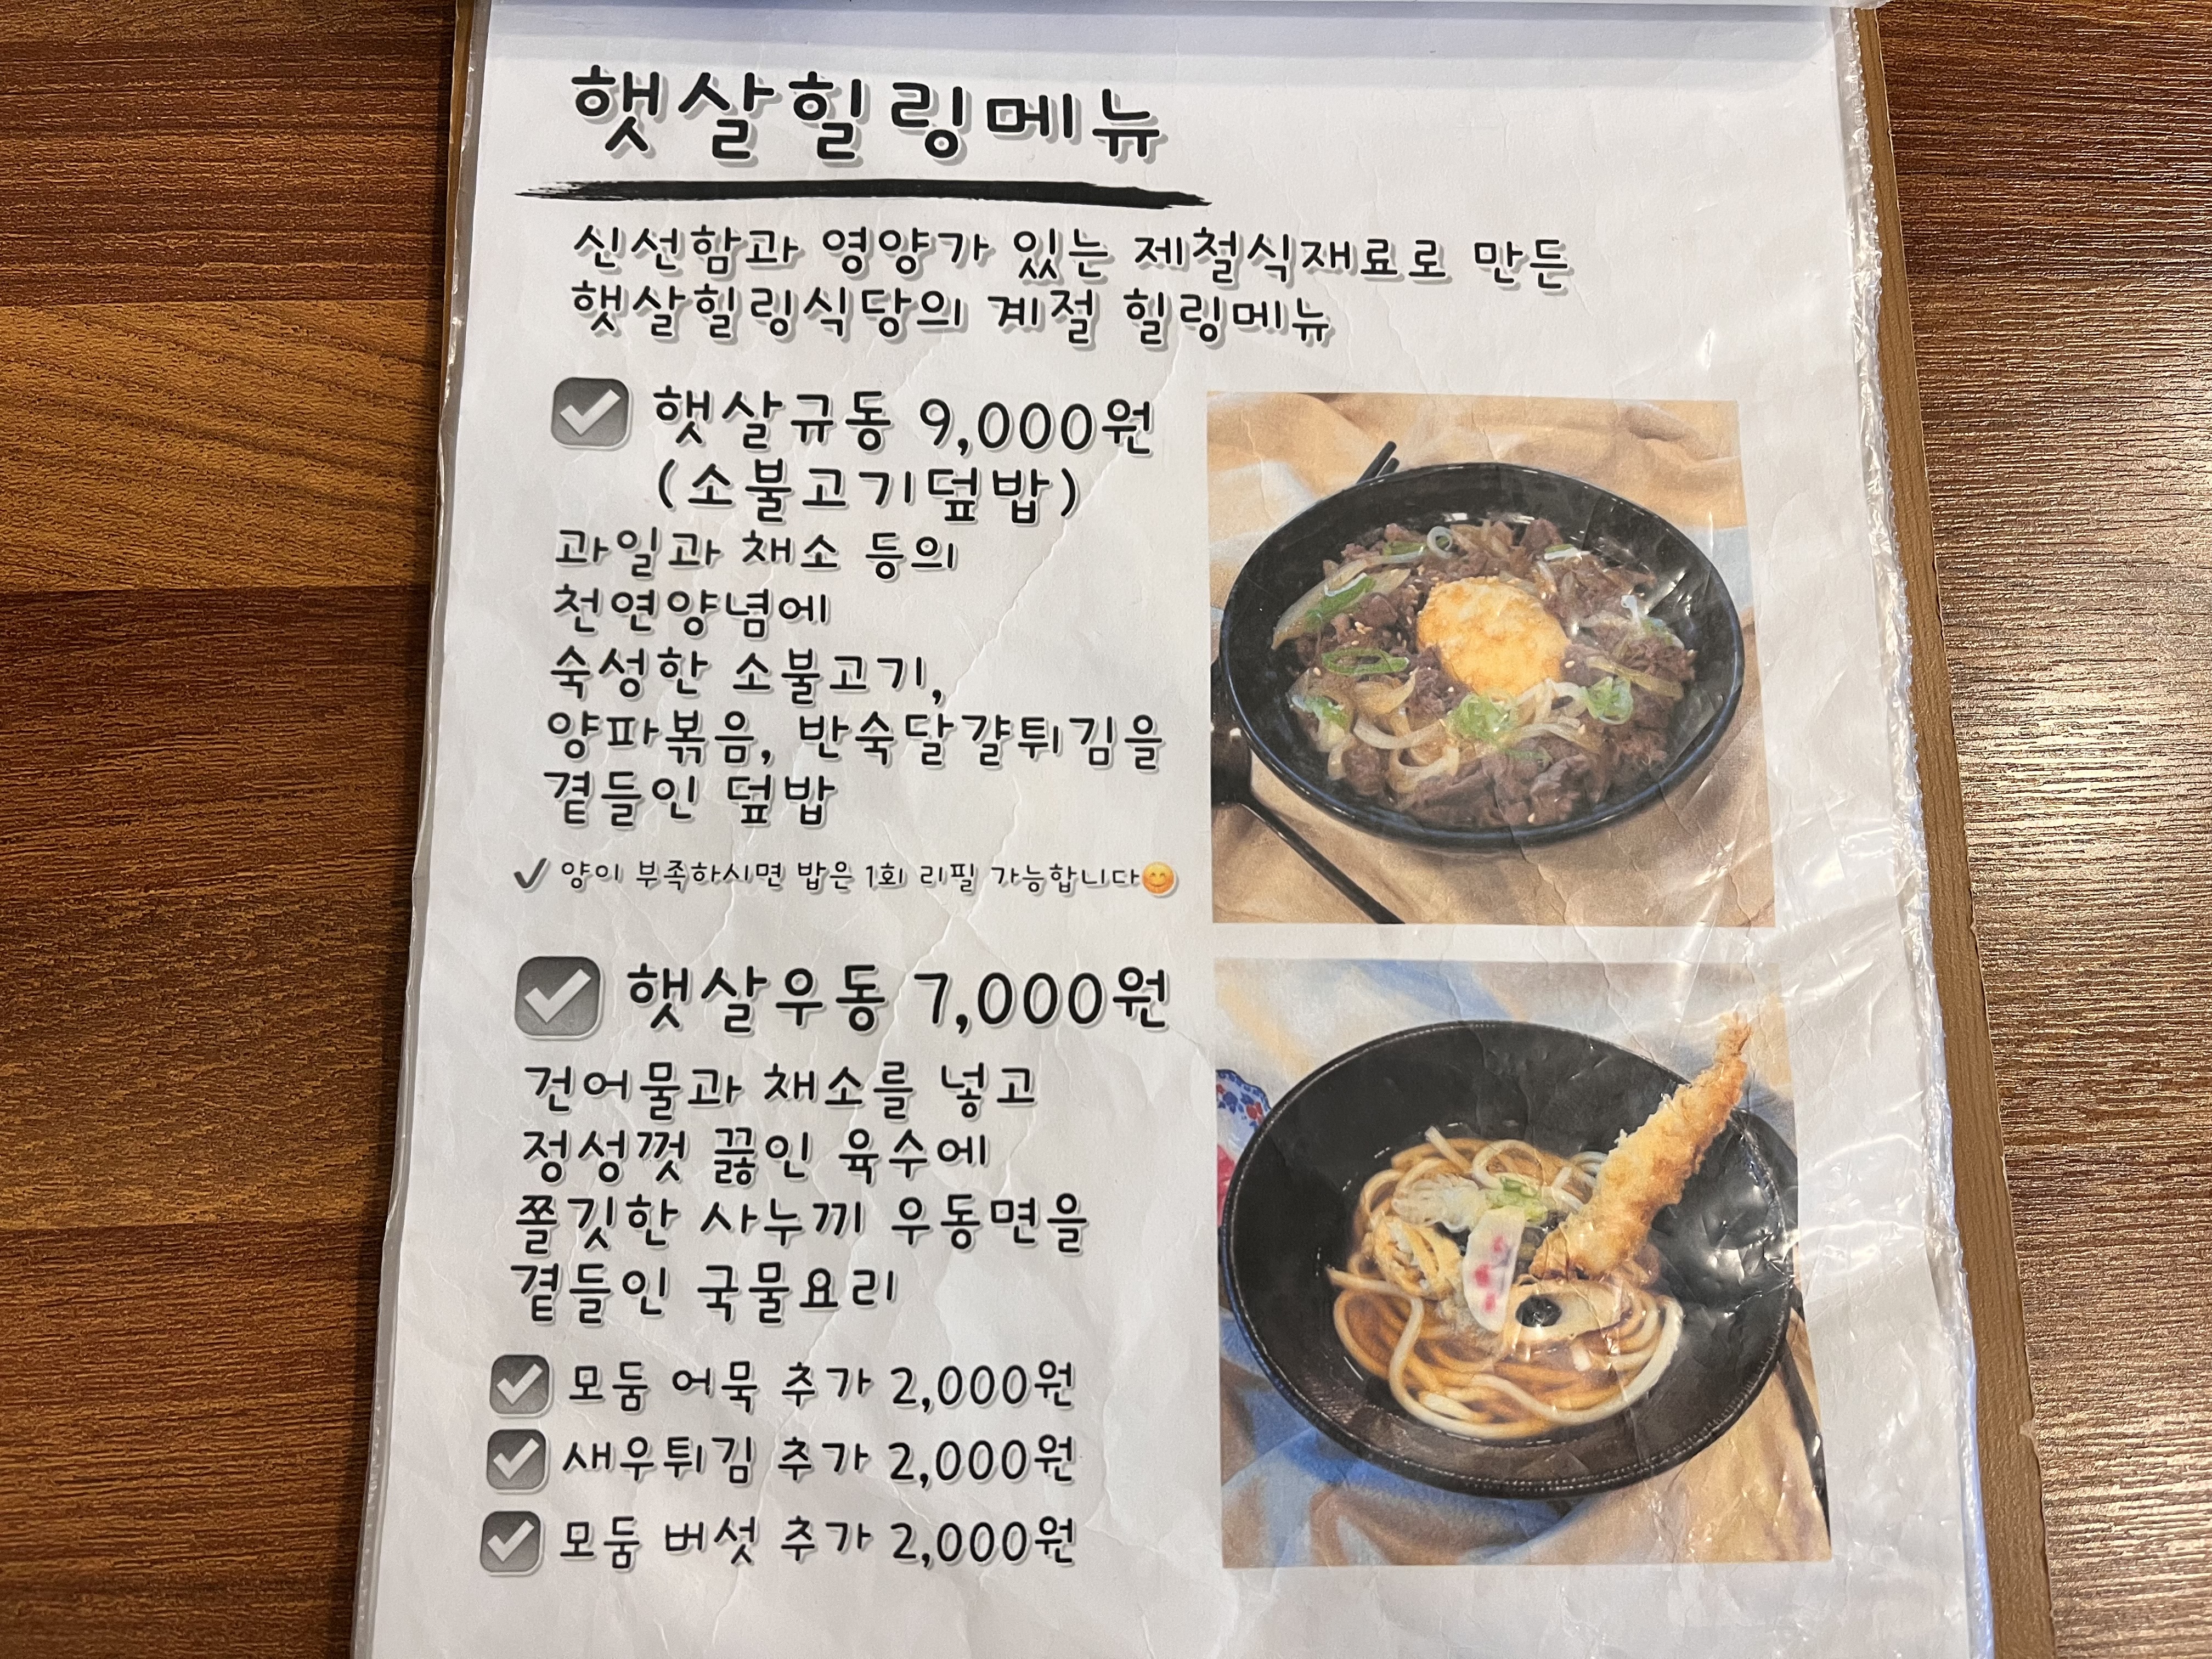 햇살힐링메뉴
신선함과 영양가 있는 제철식재료로 만든
햇살힐링식당의 계절 힐링메뉴
햇살규동 9,000원
(소불고기덮밥)
과일과 채소 등의
천연양념에
숙성한 소불고기,
양파볶음, 반숙달걀튀김을
곁들인 덮밥
✓ 양이 부족하시면 밥은 1회 리필 가능합니다😊
햇살우동 7,000원
건어물과 채소를 넣고
정성껏 끓인 육수에
쫄깃한 사누끼 우동면을
곁들인 국물요리
모둠 어묵 추가 2,000원
새우튀김 추가 2,000원
모둠 버섯 추가 2,000원